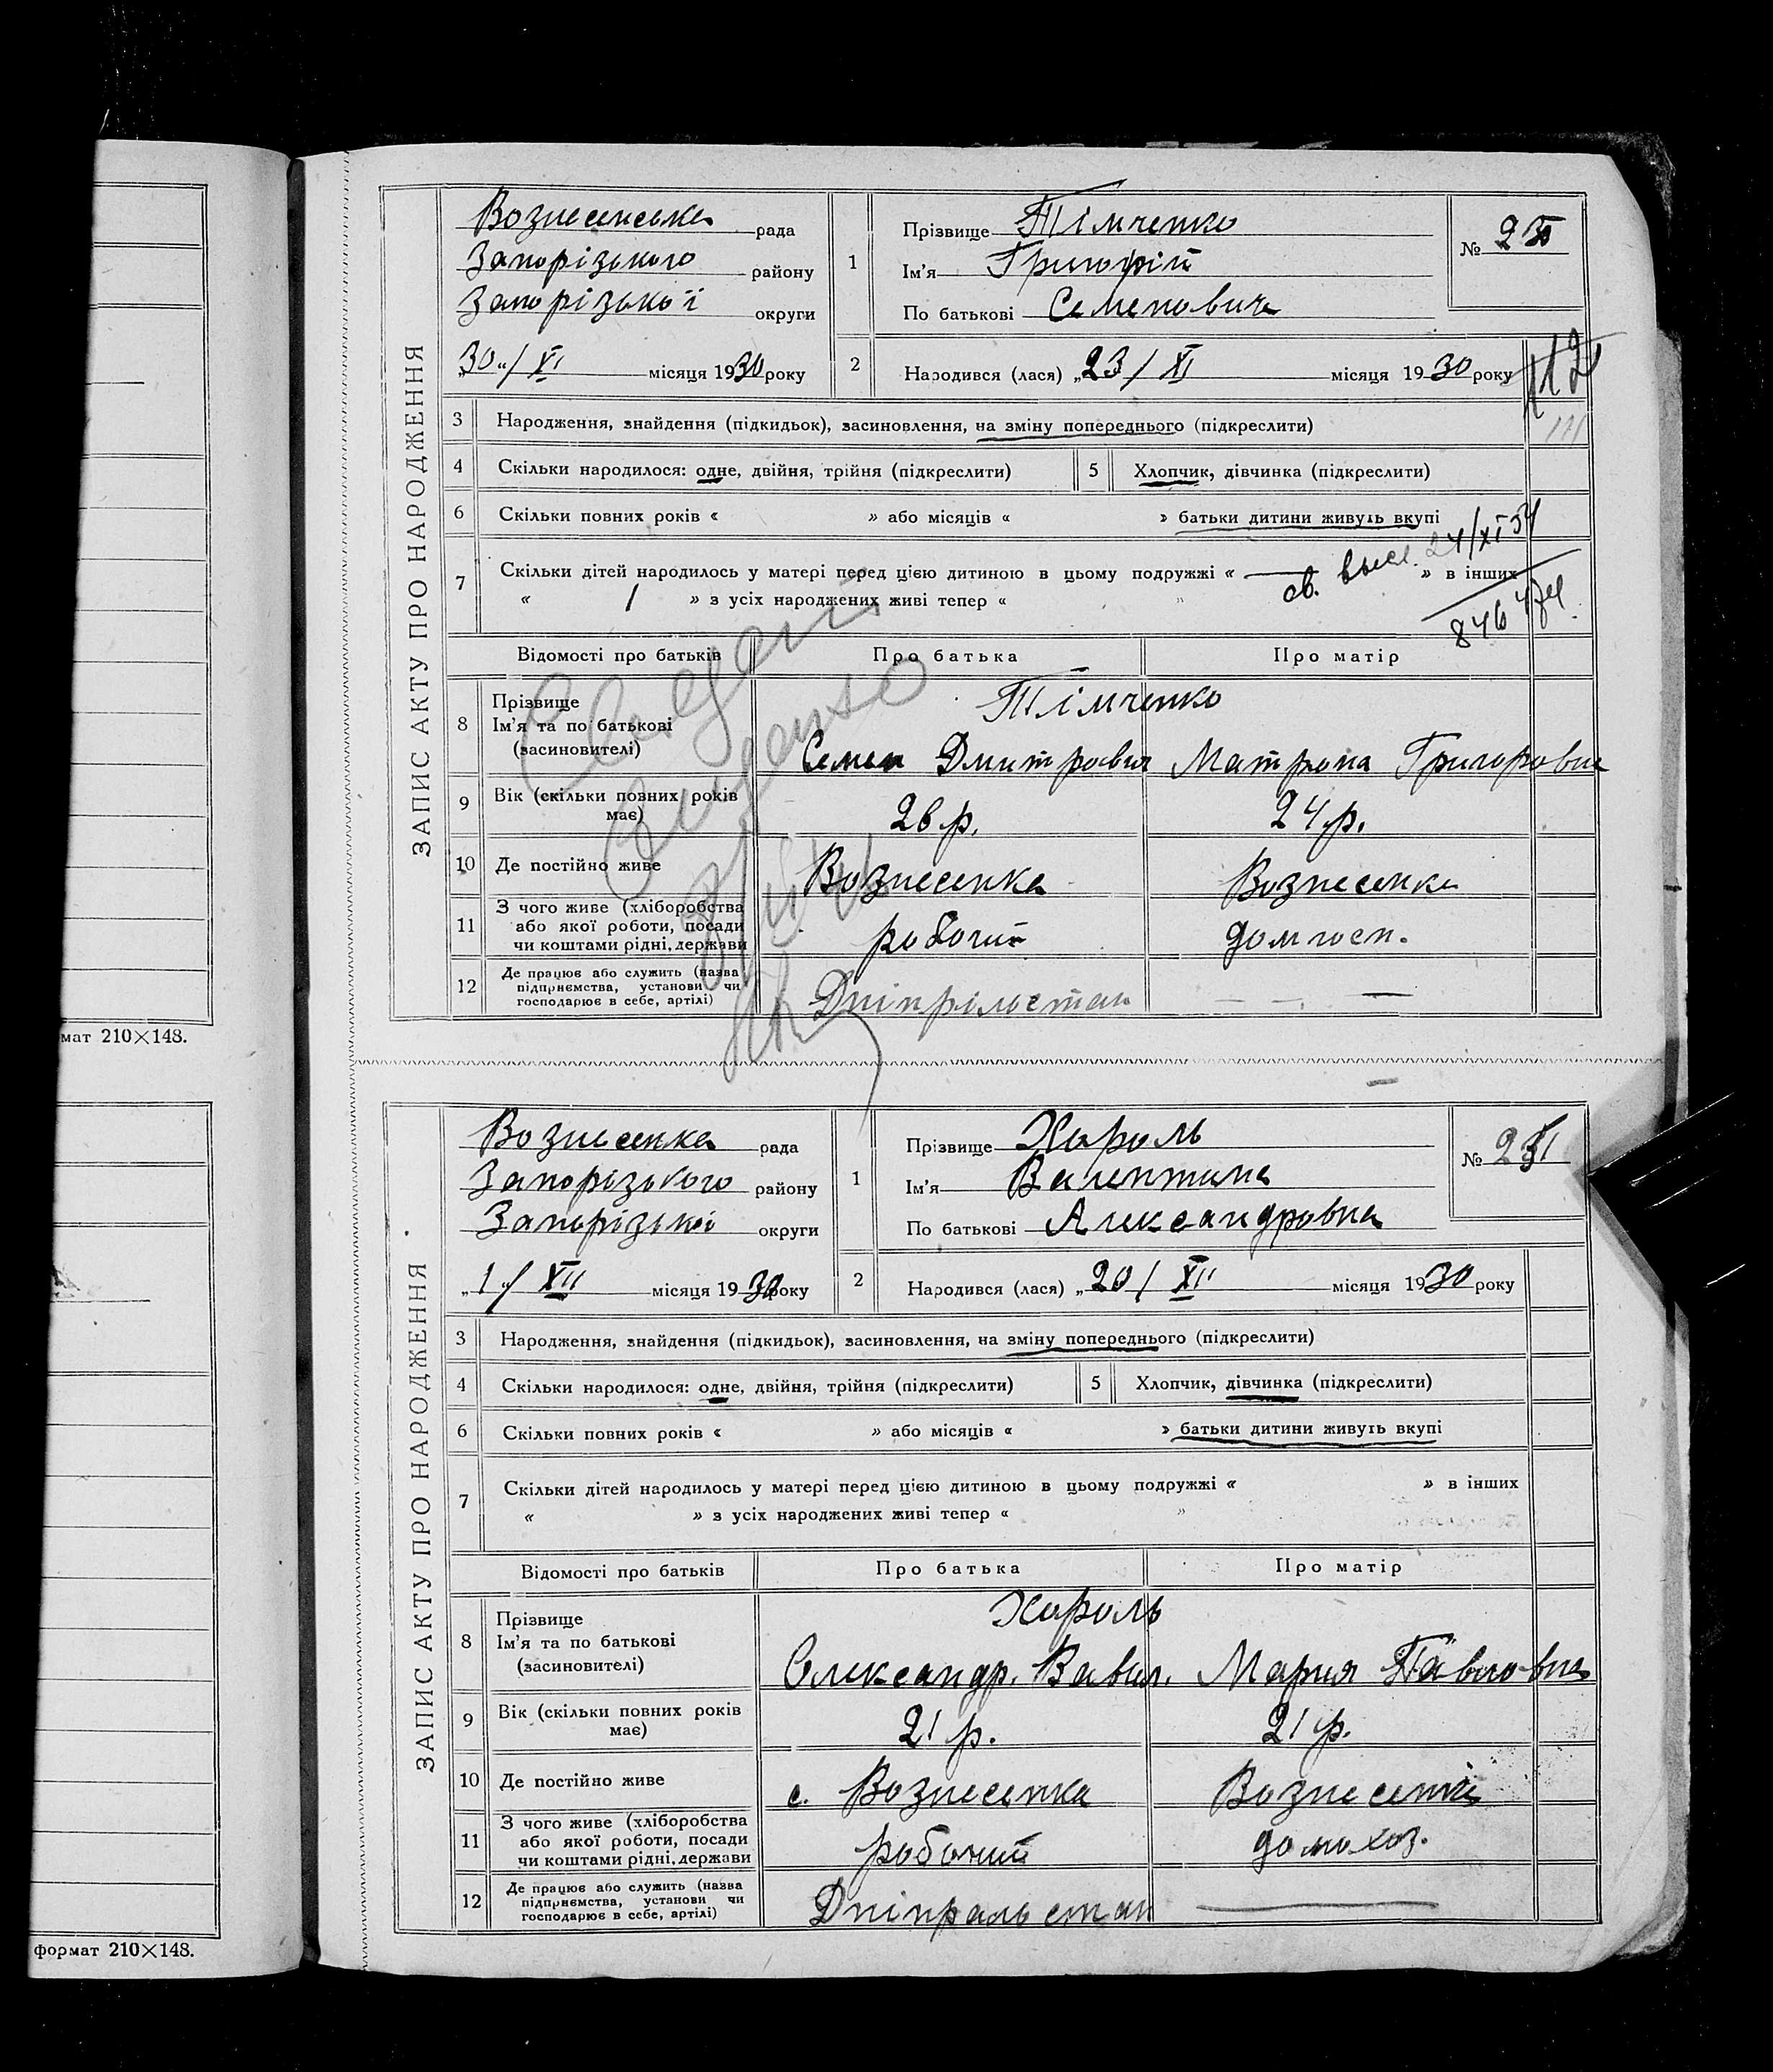 мат 210×148.
формат 210×148.
ЗАПИС АКТУ ПРО НАРОДЖЕННЯ
Вознесенська рада
Запорізького району
Запорізької округи
„30“/XI місяця 1930 року
1
Прізвище Тімченко
Ім'я Григорій
По батькові Семенович
№ 230
2
Народився (лася) „23/XI місяця 1930 року
112
111
3 Народження, знайдення (підкидьок), засиновлення, на зміну попереднього (підкреслити)
4 Скільки народилося: одне, двійня, трійня (підкреслити) 5 Хлопчик, дівчинка (підкреслити)
6 Скільки повних років « » або місяців « » батьки дитини живуть вкупі
7 Скільки дітей народилось у матері перед цією дитиною в цьому подружжі « — » в інших
« 1 » з усіх народжених живі тепер « »
св. высл. 24/XI 54
846
Відомості про батьків Про батька Про матір
8 Прізвище
Ім'я та по батькові
(засиновителі)
Тімченко
Семен Дмитрович Матрона Григоровна
9 Вік (скільки повних років
має)
26 р. 24 р.
10 Де постійно живе Вознесенка Вознесенка
11 З чого живе (хліборобства
або якої роботи, посади
чи коштами рідні, держави
робочий дом госп.
12 Де працює або служить (назва
підприємства, установи чи
господарює в себе, артілі)
Дніпрільстан — — —
ЗАПИС АКТУ ПРО НАРОДЖЕННЯ
Вознесенка рада
Запорізького району
Запорізької округи
„1“/XII місяця 1930 року
1
Прізвище Хороль
Ім'я Валентина
По батькові Александровна
№ 231
2
Народився (лася) „20/XII місяця 1930 року
3 Народження, знайдення (підкидьок), засиновлення, на зміну попереднього (підкреслити)
4 Скільки народилося: одне, двійня, трійня (підкреслити) 5 Хлопчик, дівчинка (підкреслити)
6 Скільки повних років « » або місяців « » батьки дитини живуть вкупі
7 Скільки дітей народилось у матері перед цією дитиною в цьому подружжі « » в інших
« » з усіх народжених живі тепер « »
Відомості про батьків Про батька Про матір
8 Прізвище
Ім'я та по батькові
(засиновителі)
Хороль
Олександр. Вавил. Мария Павловна
9 Вік (скільки повних років
має)
21 р. 21 р.
10 Де постійно живе с. Вознесенка Вознесенка
11 З чого живе (хліборобства
або якої роботи, посади
чи коштами рідні, держави
робочий домохоз.
12 Де працює або служить (назва
підприємства, установи чи
господарює в себе, артілі)
Дніпральстан —